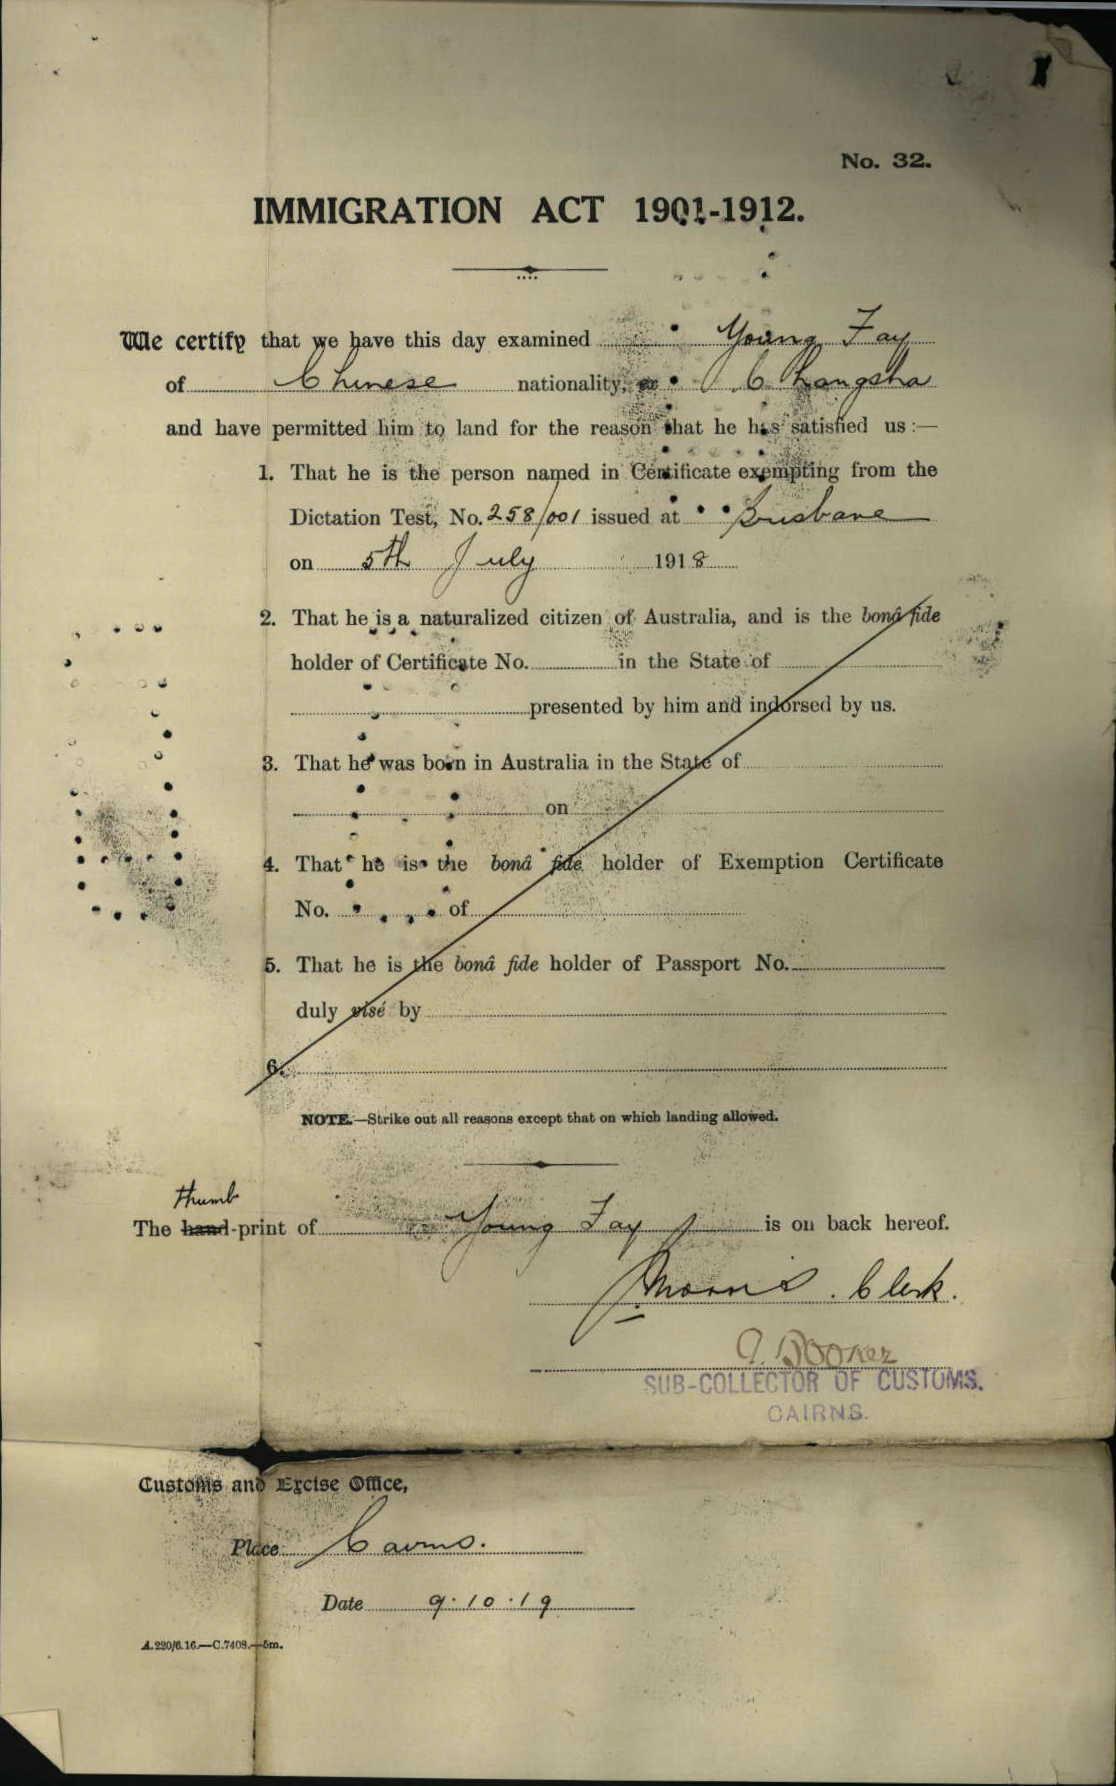 No. 32.
IMMIGRATION ACT 1901-1912.
We certify that we have this day examined Young Fay
of Chinese nationality, ex Changsha
and have permitted him to land for the reason that he has satisfied us:—
1. That he is the person named in Certificate exempting from the
Dictation Test, No. 258/001 issued at Brisbane
on 5th July 1918
2. That he is a naturalized citizen of Australia, and is the bonâ fide
holder of Certificate No. in the State of
presented by him and indorsed by us.
3. That he was born in Australia in the State of
on
4. That he is the bonâ fide holder of Exemption Certificate
No. of
5. That he is the bonâ fide holder of Passport No.
duly visé by
6.
NOTE.—Strike out all reasons except that on which landing allowed.
thumb
The hand-print of Young Fay is on back hereof.
J Morris. Clerk.
A. Booker
SUB-COLLECTOR OF CUSTOMS.
CAIRNS.
Customs and Excise Office,
Place Cairns.
Date 9.10.19
A.220/6.16.—C.7408.—5m.